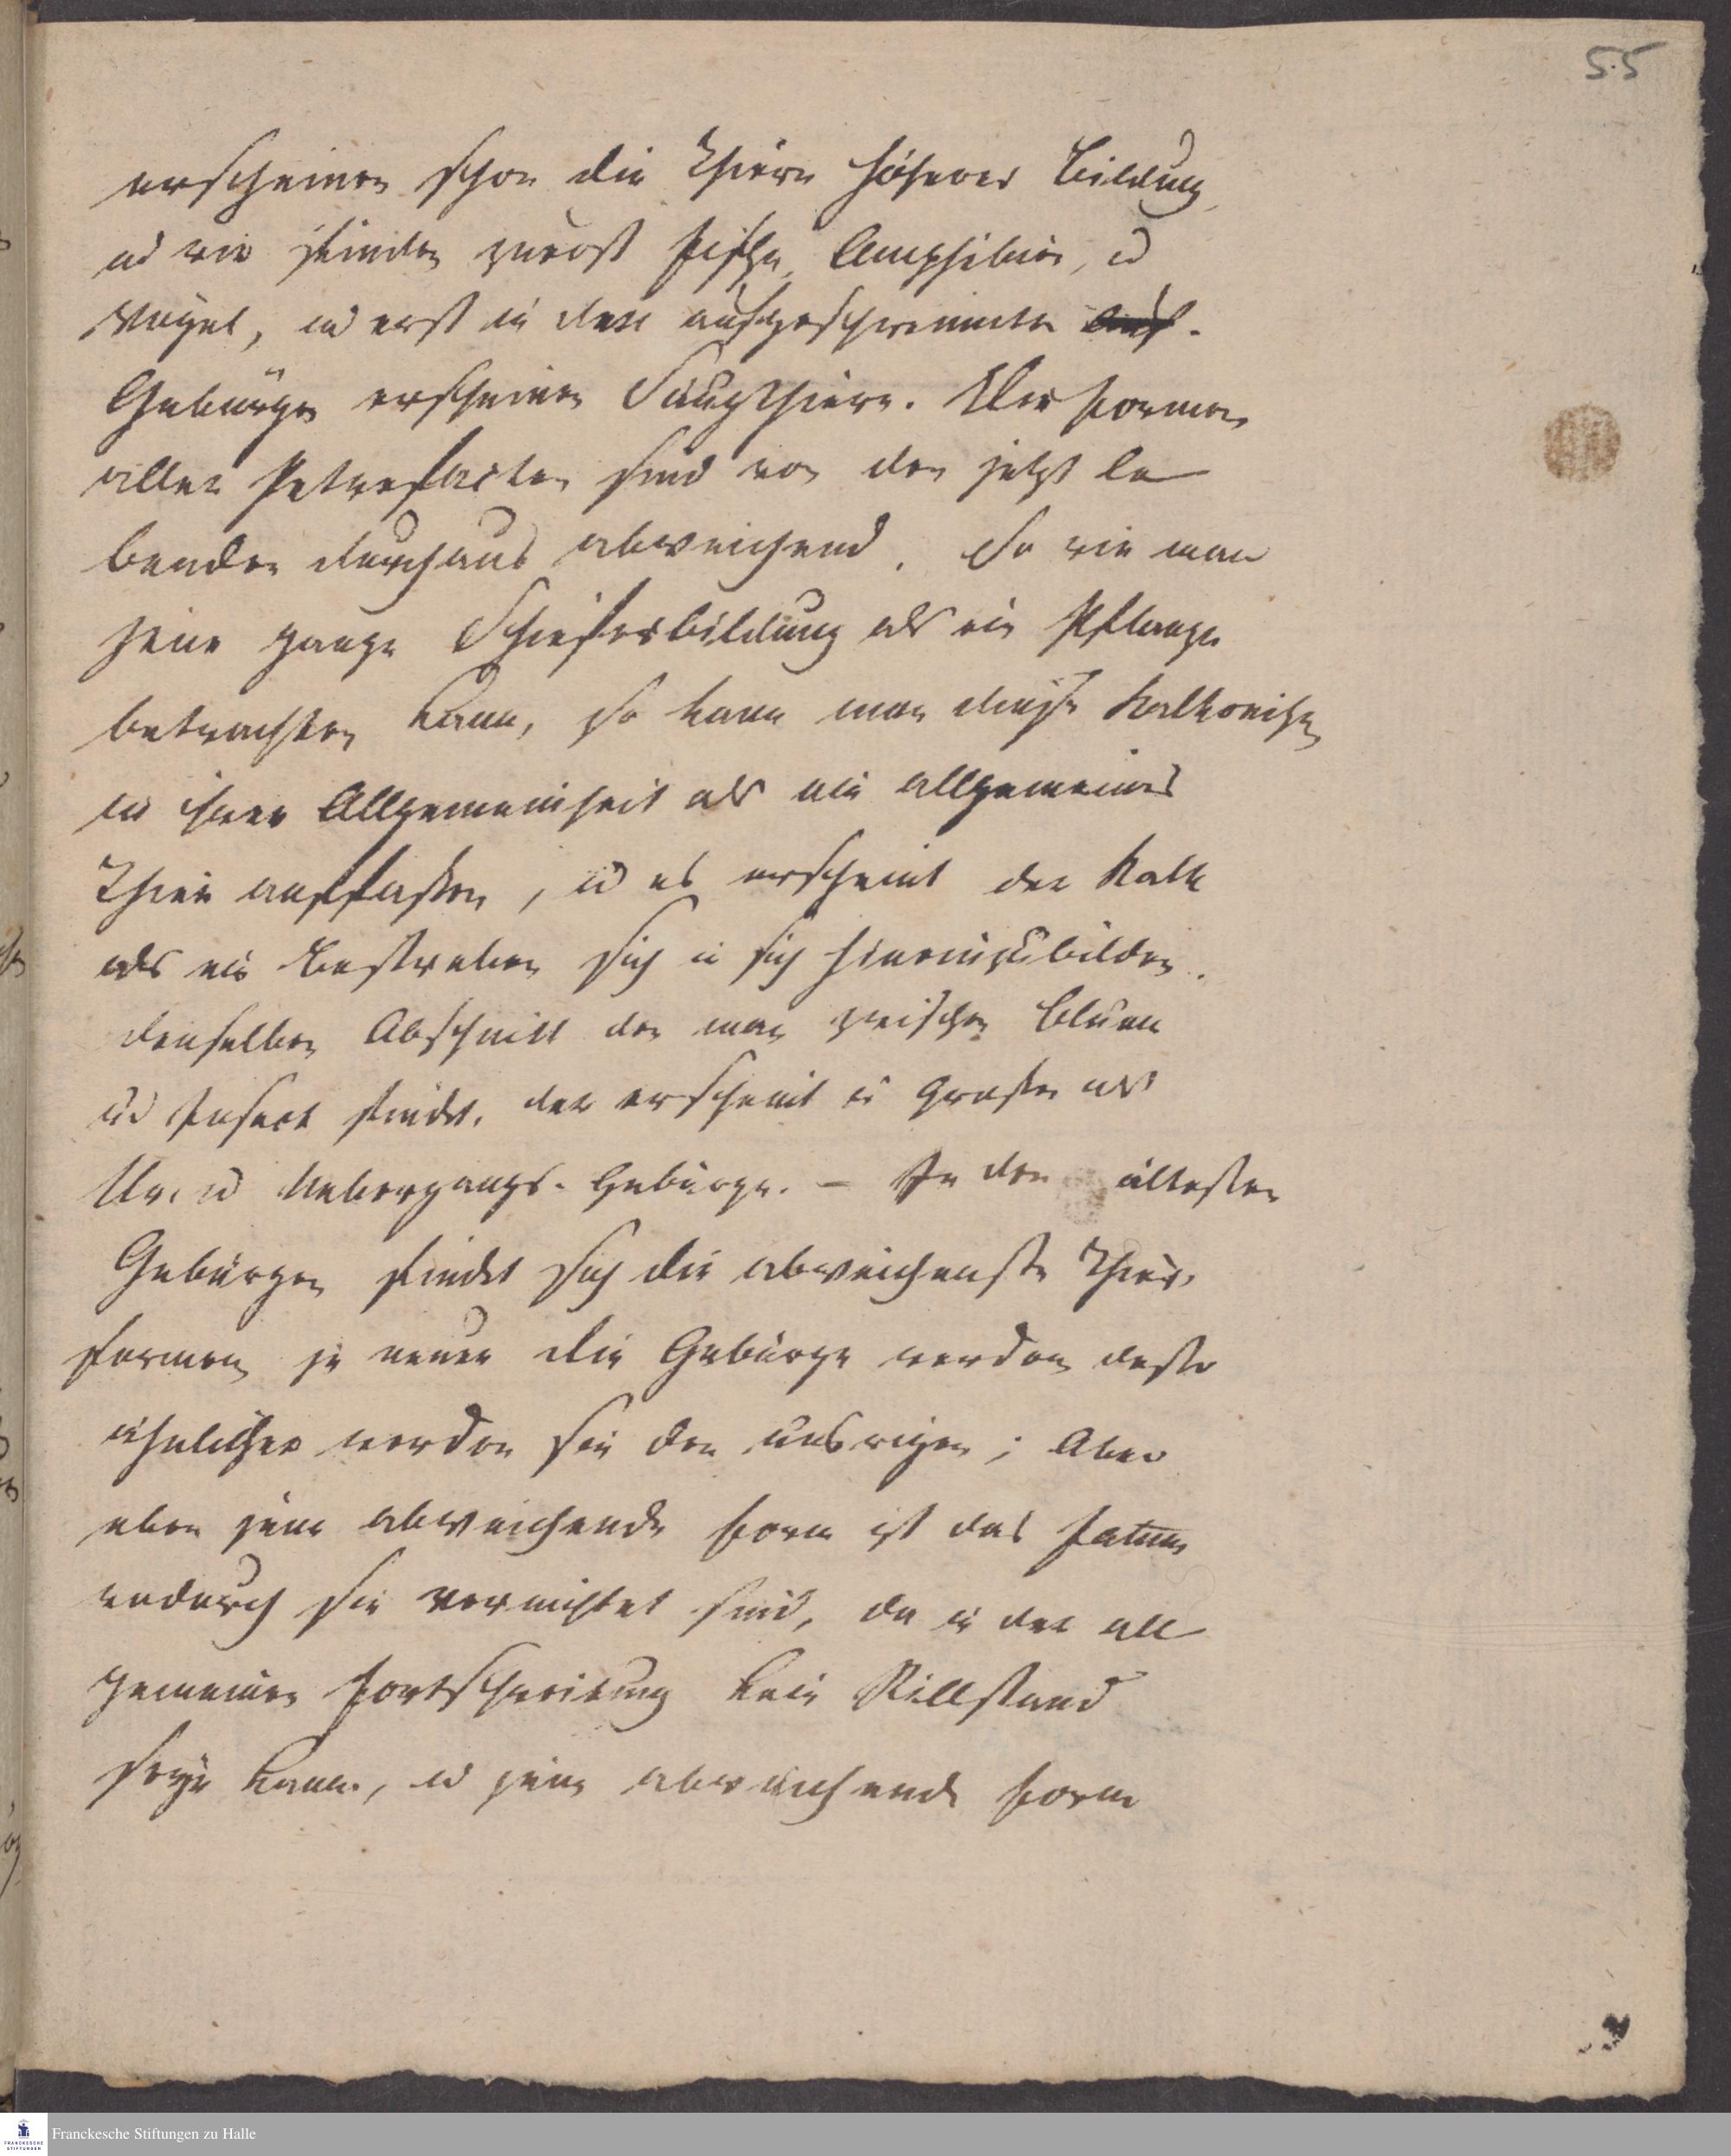 55
erscheinen schon die Thiere höherer Bildung
ud wir finden zuerst Fische, Amphibien, ud
Vögel, ud erst in den aufgeschwemmten
Gebürgen erscheinen Säugthiere. Die Formen
aller Petrefacten sind von den jetzt le
benden durchaus abweichend. So wie man
jene ganze Schieferbildung als eine Pflanze
betrachten kann, so kann man diese Kalkreihe
in ihrer Allgemeinheit als ein allgemeines
Thier auffassen, ud es erscheint der Kalk
als ein Bestreben sich in sich hineinzubilden.
denselben Abschnitt den man zwischen Blume
ud Insect findet, der erscheint im Großen als
Ur- ud Uebergangs-Gebürge. – In den ältesten
Gebürgen findet sich die abweichenste Thier-
formen je neuer die Gebürge werden desto
ähnlicher werden sie den unsrigen; Aber
eben jene abweichende Form ist das Fatum
wodurch sie vernichtet sind, da in der all
gemeinen Fortschreitung kein Stillstand
seyn kann, ud jene abweichende Form
Franckesche Stiftungen zu Halle
FRANCKESCHE
STIFTUNGEN